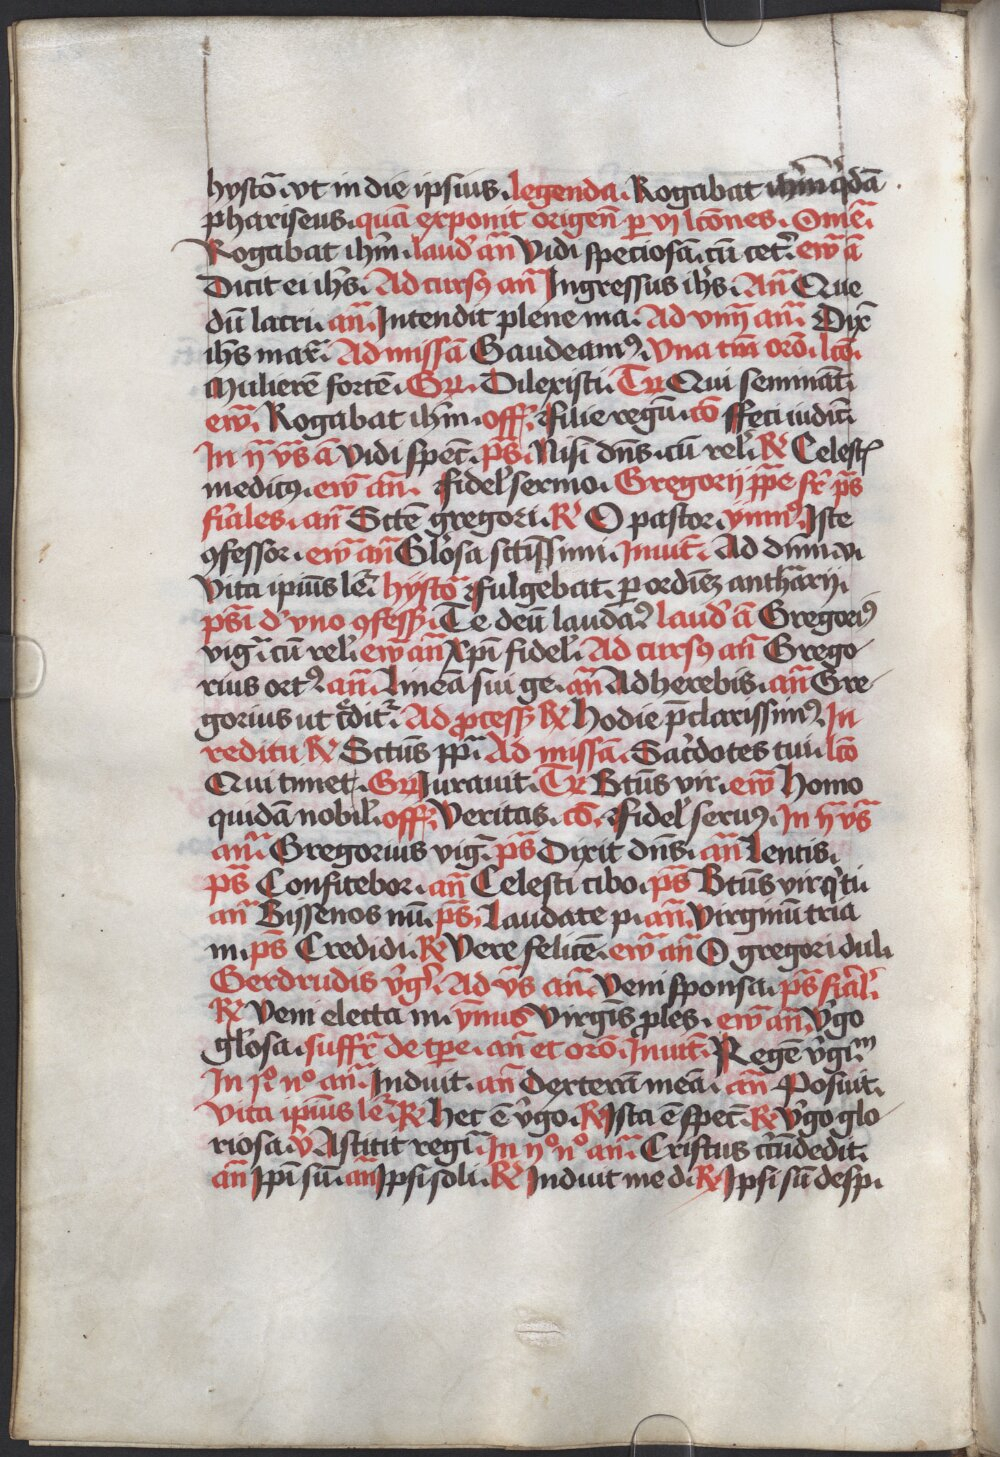 hystō. vt in die ipsius. legenda. Rogabat ihm̄ q̇dā.
phariseus. quā exponit origen̄ ꝑ vj lc̄ones. Omē.
Rogabat ihm̄. laud̓ an̄ Vidi speciosā. cū cet̓. ew̄ a̅
Dicit ei ihs̄. Ad cursꝰ an̄ Ingressus ihs̄. An̄ Que
dū latri. an̄. Intendit plene ma. Ad vnīj an̄. Dix̄
ihs̄ mar̄. Ad missā Gaudeamꝰ. Vna tm̄ orō. lcō.
Mulierē fortē. Gr̄. Dilexisti. Tr̄ Qui semināt.
ew̄. Rogabat ihm̄. off̄. ffilie regū. cō ffeci iudiċ
In ij vs̄ a̅ Vidi spēc. ps̄. Nisi dn̄s. cū rel̓. R̓ Celest̄
medicꝰ. ew̄ an̄. ffidel̓ sermo. Gregorij ppē ff̄ ps̄
fiāles. an̄ Sctē gregori. R̓ O pastor. ymnꝰ. Iste
ꝯfessor. ew̄ an̄ Glōsa sctīssimi. Inuit̄. Ad dn̄m vi
Vita ipiūs lēr hystō ffulgebat. ꝑ ordiēꝫ anth̄arij.
psī d̓ vno ꝯfess̄. Te deū laudaꝰ laud̓ a̅ Gregoriꝰ
vig̓. cū rel̓. ew̄ an̄ Xpī fidel̓. Ad cursꝰ an̄ Grego
rius ortꝰ. an̄. Lineā sui ge. an̄ Adherebis. an̄ Gre
gorius ut t̄dit̓. Ad ꝓcess̄ R̓ Hodie p̄clarissimꝰ. In
reditu R̓ Sctūs pp̄. Ad missā. Sac̓dotes tui. lcō
Qui timet. Gr̄ Iurauit. Tr̄ Btūs vir. ew̄ Homo
quidā nobil̓. off̄. Veritas. cō. ffidel̓ seruꝰ. In ij vs̄
an̄. Gregorius vig̓. ps̄ Dixit dn̄s. an̄ Lentis.
ps̄ Confitebor. an̄ Celesti cibo. ps̄ Btūs vir q̓ ti.
an̄ Bissenos nū. ps̄. Laudate p. an̄. Virginū tria
m. ps̄ Credidi. R̓ Vere felicē. ew̄ an̄ O gregori dul.
Gerdrudis v̓g̓. Ad vs̄ an̄. Veni sponsa. ps̄ fiāl̓.
R̓ Veni electa m. ymūs Virgīs ꝓles. ew̄ an̄. V̓go
glōsa. suffr̄ de tpe. an̄ et orō. Inuit̄. Regē v̓gīm
In jº nº an̄. Induit. an̄ Dexterā meā. an̄ Posuit.
Vita ipiūs lēr R̓ Hec ē v̓go. R̓ Ista ē spēc. R̓ V̓go glo
riosa. v̓ Astitit regī. In ijº nº an̄. Cristus c̓cūdedit.
an̄ Ipī sū. an̄ Ipsi soli. R̓ Induit me d. R̓ Ipsi sū desp.